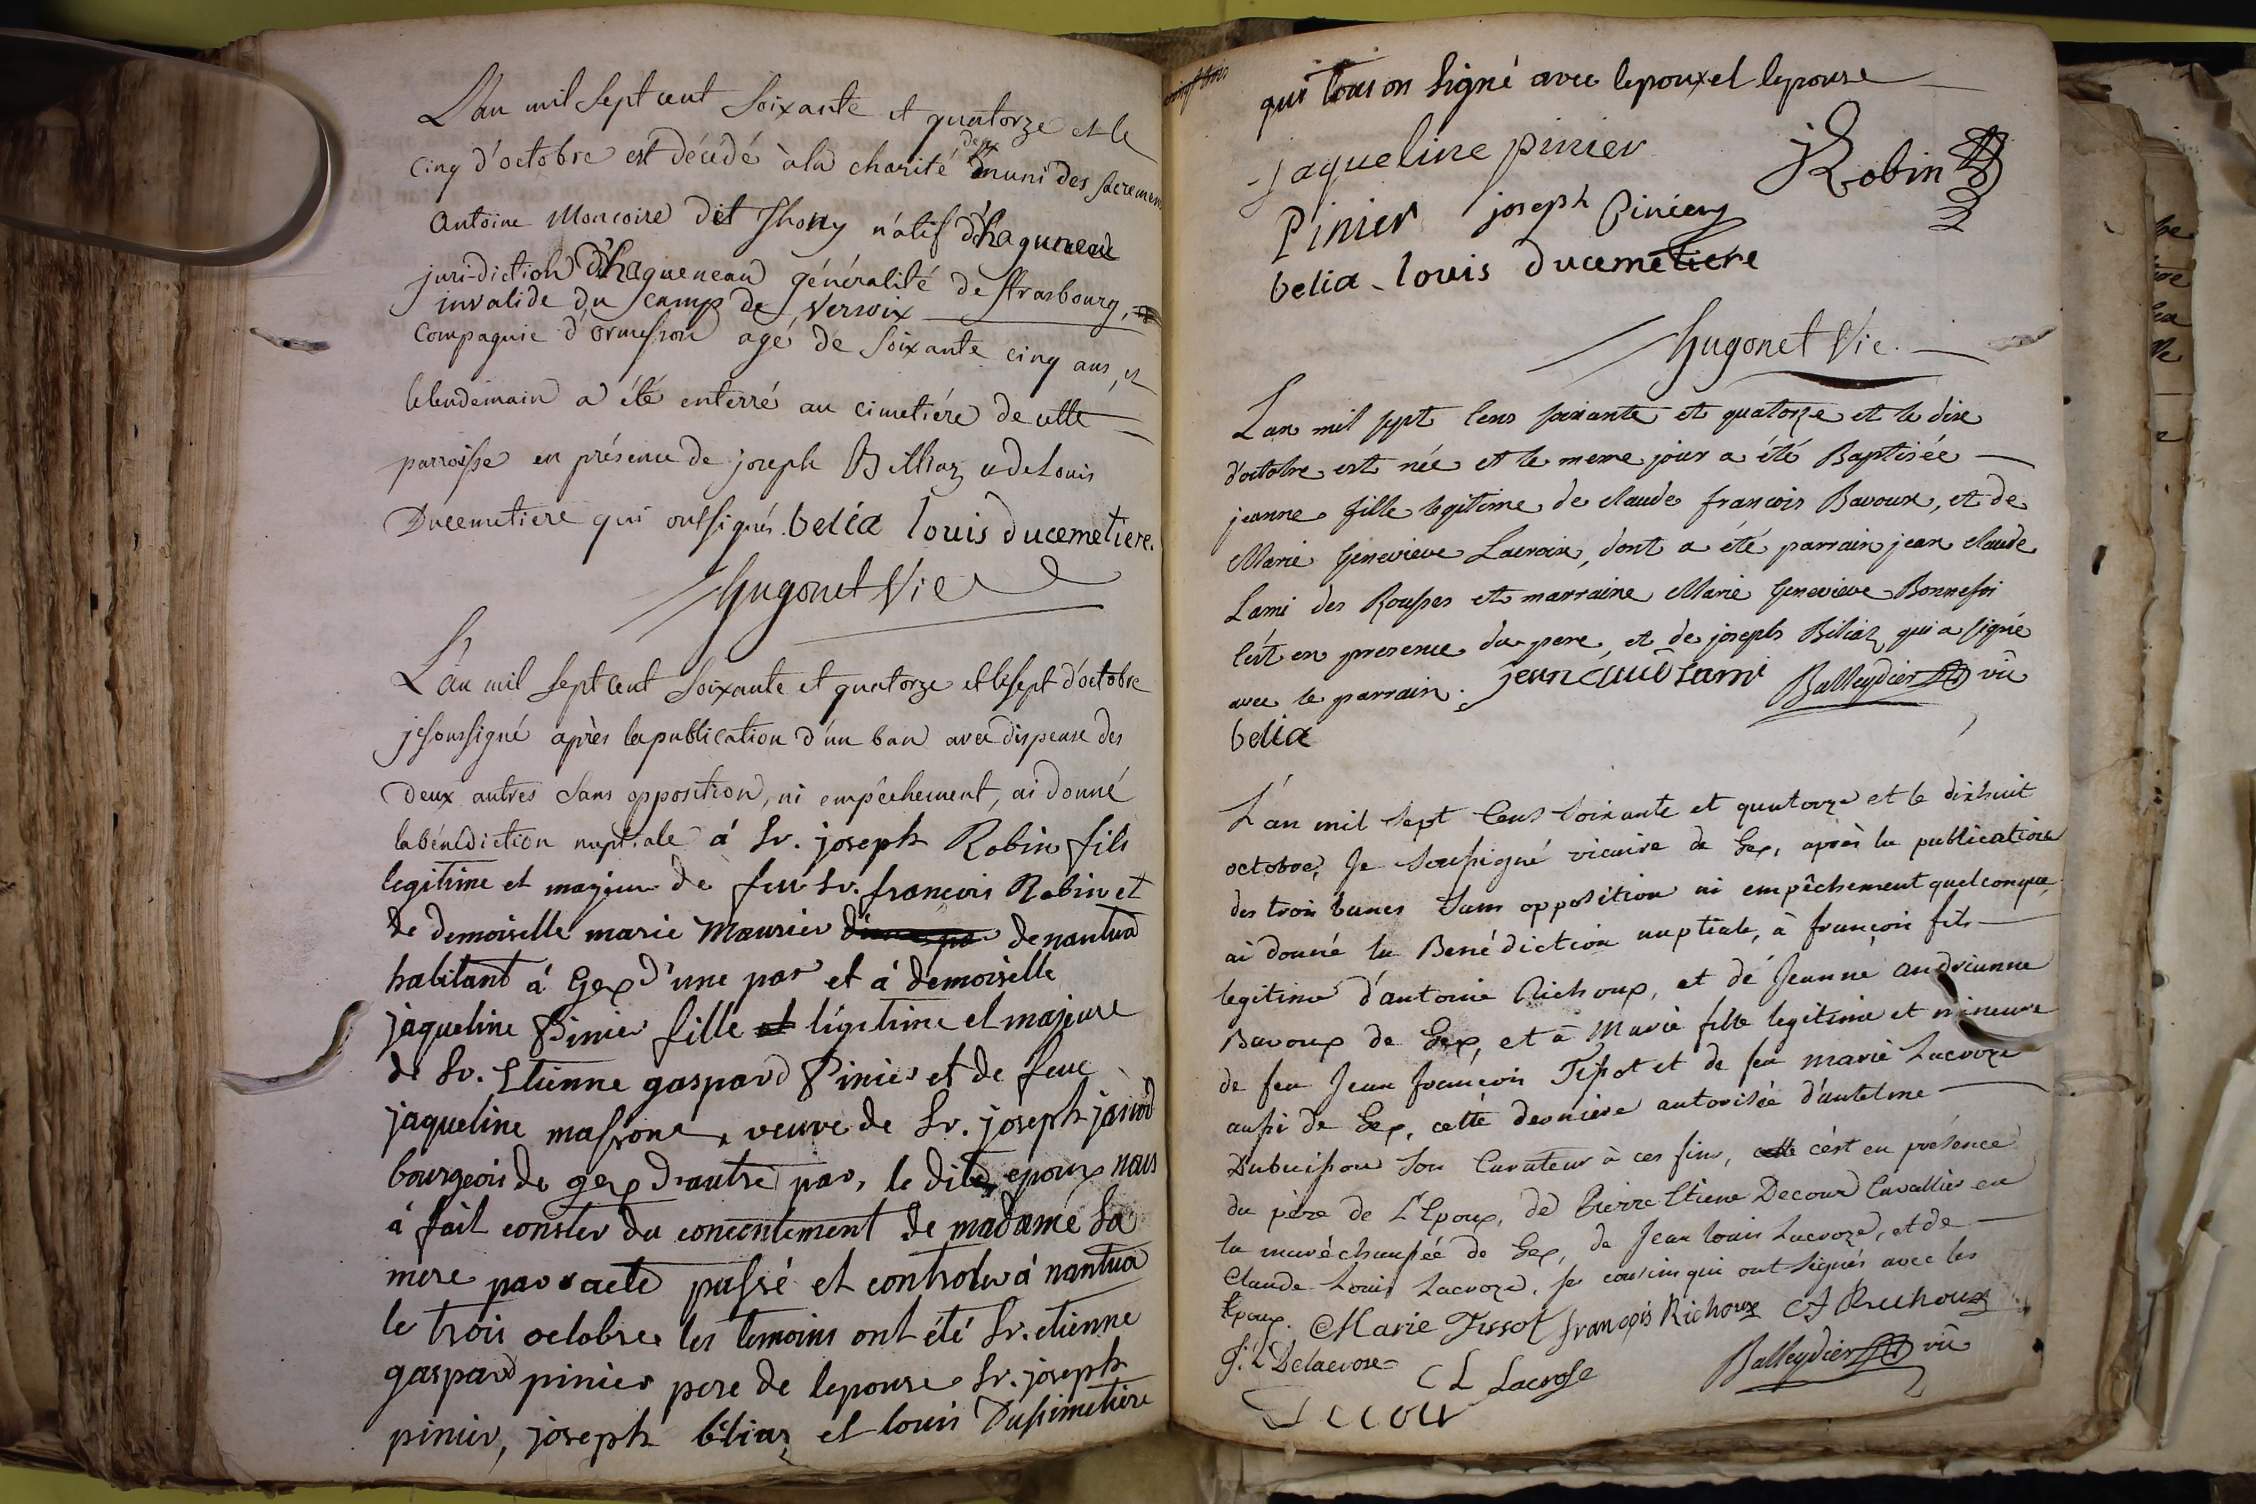 L'an mil sept cent soixante et quatorze et le
cinq d'octobre est décédé à la charité muni des sacremens
antoine Moncoire dit Thony nâtif d'haguneau
juri-diction d'hagueneau généralité de strasbourg,
invalide du camp de Versoix
compagnie d'ormesson agé de soixante cinq ans, et
lelendemain a été enterré au cimetiére de cette
parroisse en présence de joseph Billiaz et de Louis
Ducemetiere qui ont signés. belia louis ducemetiere.
hugonet Vic
L'an mil sept cent soixante et quatorze et le sept d'octobre
je soussigné après la publication d'un ban avec dispense des
deux autres sans opposition, ni empêchement, ai donné
la bénédiction nuptiale á Sr. joseph Robin fils
legitime et majeur de feu Sr. francois Robin et
de demoiselle marie Maurier de nantua
habitant á Gex d'une par et á demoiselle
jaqueline Pinier fille et légitime et majeure
de Sr. Etienne gaspard Pinier et de feue
jaqueline massone, veuve de Sr. joseph janod
bourgeois de gex d'autre par, le dit epoux nous
á fait conster du concentement de madame sa
mere par acte passé et controler á nantua
le trois octobre les temoins ont été Sr. etienne
gaspard pinier pere de lepouse Sr. joseph
pinier, joseph béliaz et louis Dussimetière
qui tous on signé avec lepoux et lepouse
jaqueline pinier
JRobin
Pinier joseph Pinier
belia louis ducemetiere
hugonet Vic.
L'an mil sept cens soixante et quatorze et le dix
d'octobre est née et le meme jour a été Baptisée
jeanne fille legitime de claude françois Bavoux, et de
Marie Genevieve Lacroix, dont a été parrain jean claude
Lami des Rousses et marraine Marie Genevieve Bonnefoi
c'est en presence du pere, et de joseph Biliaz qui a signé
avec le parrain. jean claude Lami Balleydier vic
belia
L'an mil sept cens soixante et quatorze et le dixhuit
octobre, Je soussigné vicaire de Gex, après la publication
des trois bancs sans opposition ni empêchement quelconque,
ai donné la Benédiction nuptiale, à françois fils
legitime d'antoine Richoux, et de Jeanne andrianne
Bavoux de Gex, et à Marie fille legitime et mineure
de feu Jean françois Tissot et de feu marie Lacroze
aussi de Gex, cette derniere autorisée d'antelme
Dubuisson son Curateur à ces fins, cette c'ést en présence
du père de L'Epoux, de Pierre Etiene Decour Cavallier en
la maréchaussée de Gex, de Jean louis Lacroze, et de
Claude Louis Lacroze, ses cousins qui ont signés avec les
Epoux. Marie Tissot françois Richoux A Richoux
J: L Delacrose C L Lacrose Balleydier vic
Decour